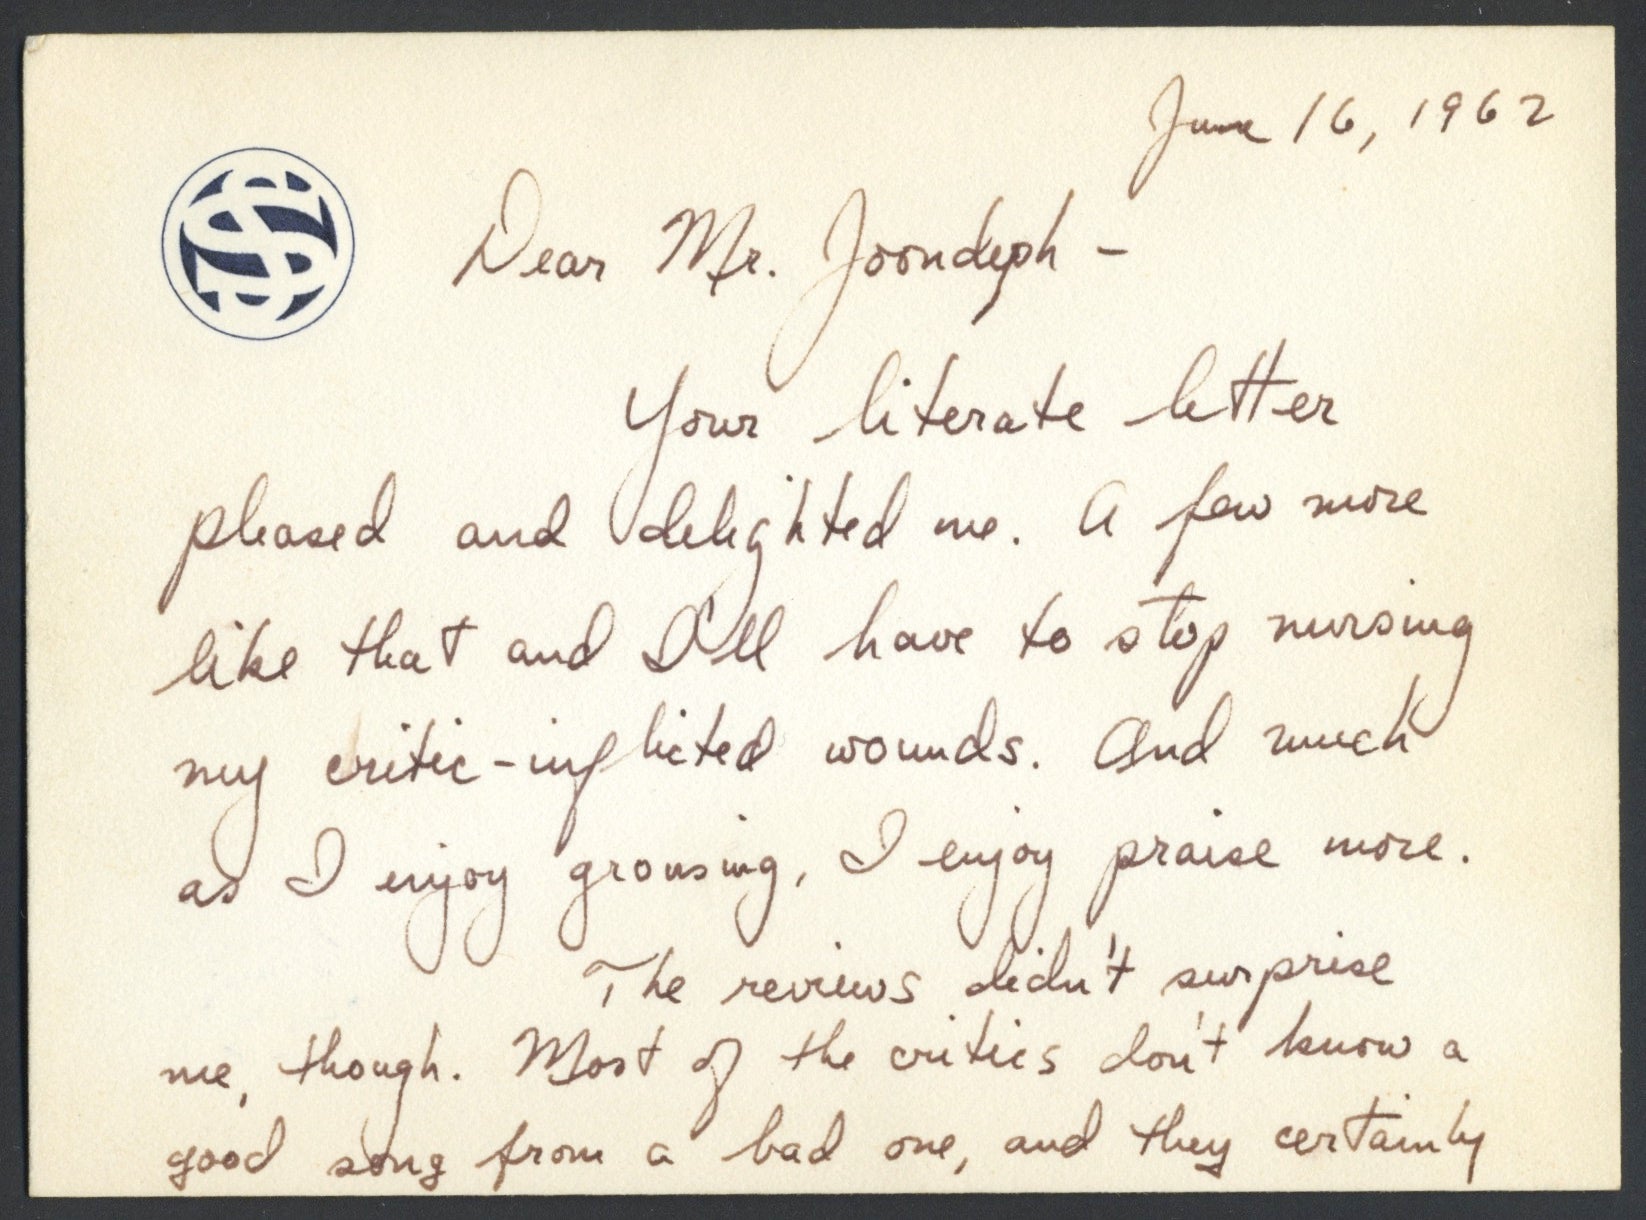 June 16, 1962
SS
Dear Mr. Joondeph -
Your literate letter
pleased and delighted me. A few more
like that and I'll have to stop nursing
my critic-inflicted wounds. And much
as I enjoy grousing, I enjoy praise more.
The reviews didn't surprise
me, though. Most of the critics don't know a
good song from a bad one, and they certainly